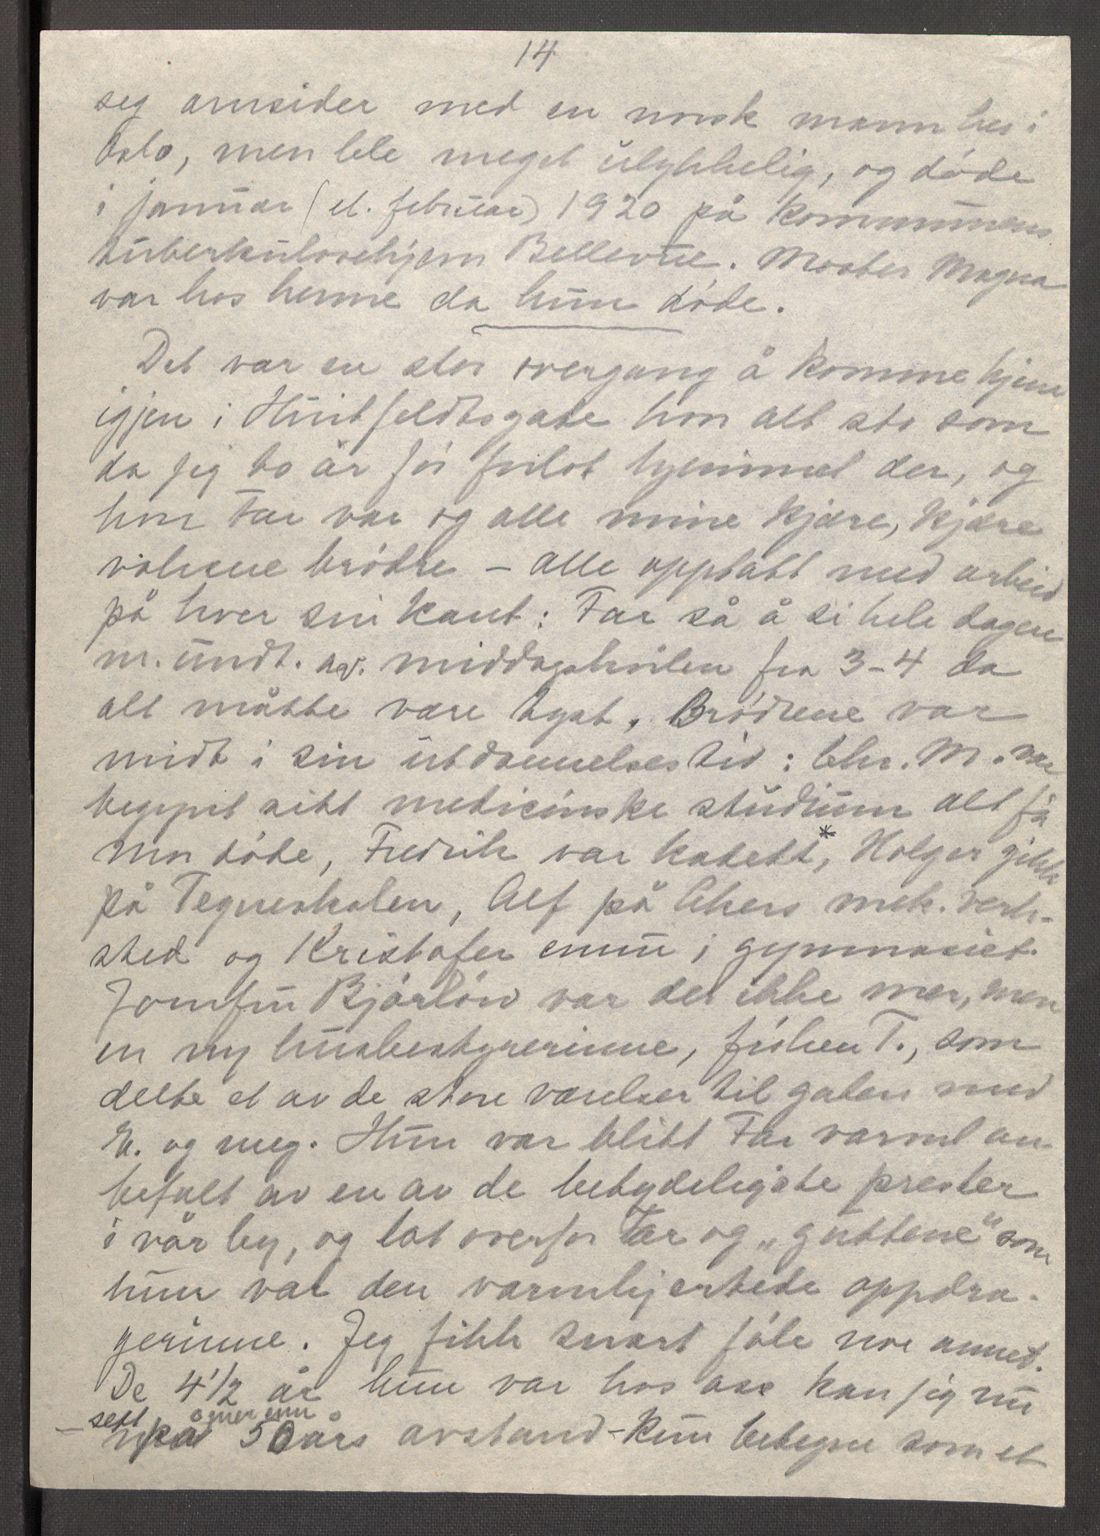 14
seg omsider med en norsk mann her i
Oslo, men ble meget ulykkelig, og døde
i januar (el. februar) 1920 på kommunens
tuberkulosehjem Bellevue. Moster Magna
var hos henne da hun døde.
Det var en stor overgang å komme hjem
igjen i Huitfeldtsgate hvor alt sto som
da jeg to år før forlot hjemmet der, og
hvor Far var og alle mine kjære, kjære
voksne brødre – alle opptatt med arbeid
på hver sin kant: Far så å si hele dagen
m. undt. av. middagshvilen fra 3-4 da
alt måtte være tyst. Brødrene var
midt i sin utdannelsestid: Chr. M. var
begynt sitt medicinske studium alt før
mor døde, Fredrik var kadett*, Holger gikk
på Tegneskolen, Alf på Akers mek. verk-
sted og Kristofer ennu i gymnasiet.
Jomfru Bjørløw var der ikke mer, men
en ny husbestyrerinne, frøken T., som
delte et av de store værelser til gaten med
E. og meg. Hun var blitt Far varmt an-
befalt av en av de betydeligste prester
i vår by, og lot overfor Far og „guttene“ som
hun var den varmhjertede oppdra-
gerinne. Jeg fikk snart føle noe annet.
De 4 1/2 år hun var hos oss kan jeg nu
– sett på over ennu 50 års avstand – kun betegne som et